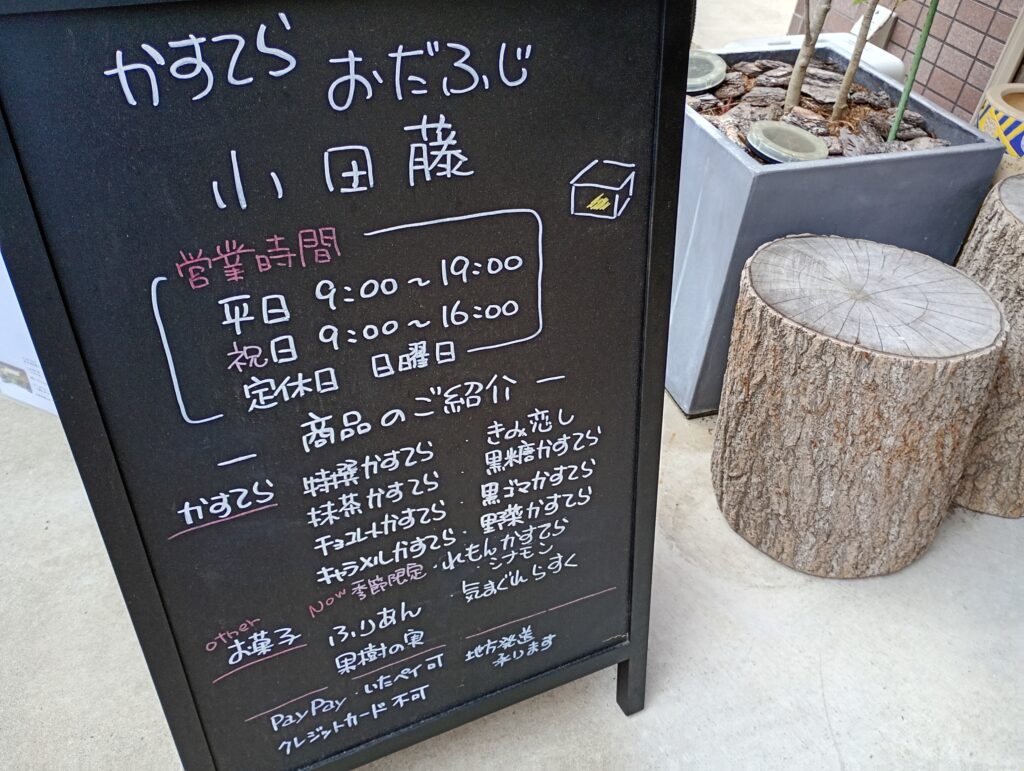 かすてら おだふじ
小田藤
営業時間
平日 9:00~19:00
祝日 9:00~16:00
定休日 日曜日
― 商品のご紹介 ―
かすてら 特撰かすてら きみ恋し
抹茶かすてら 黒糖かすてら
チョコレートかすてら・黒ゴマかすてら
キャラメルかすてら・野菜かすてら
Now 季節限定・れもんかすてら
・シナモン
other
お菓子 ふりあん ・気まぐれらすく
果樹の実
PayPay・いたペイ可
クレジットカード不可
地方発送
承ります